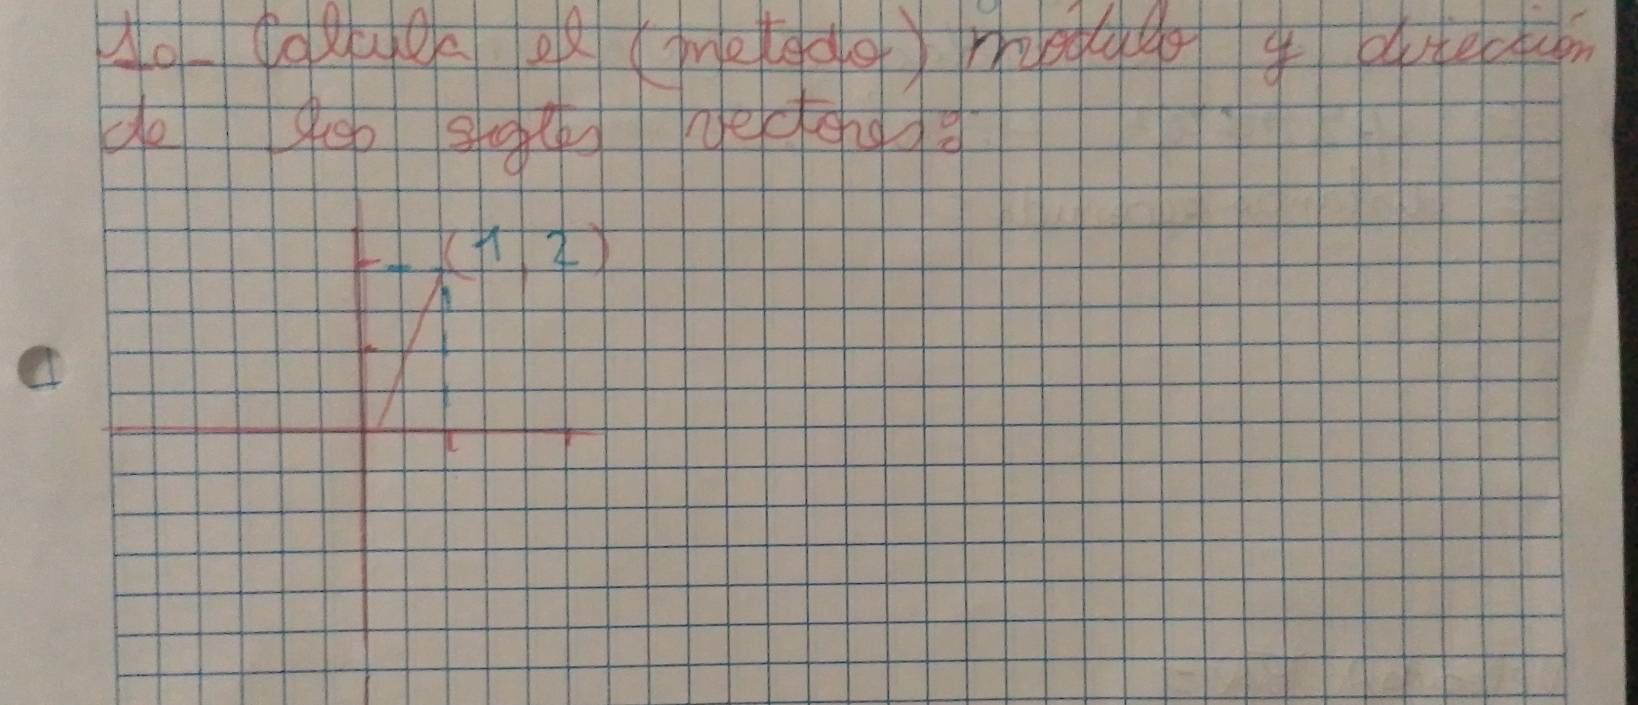 10- Calcula el (metodo) módulo y dirección
de los sgtes vectores:
(1, 2)